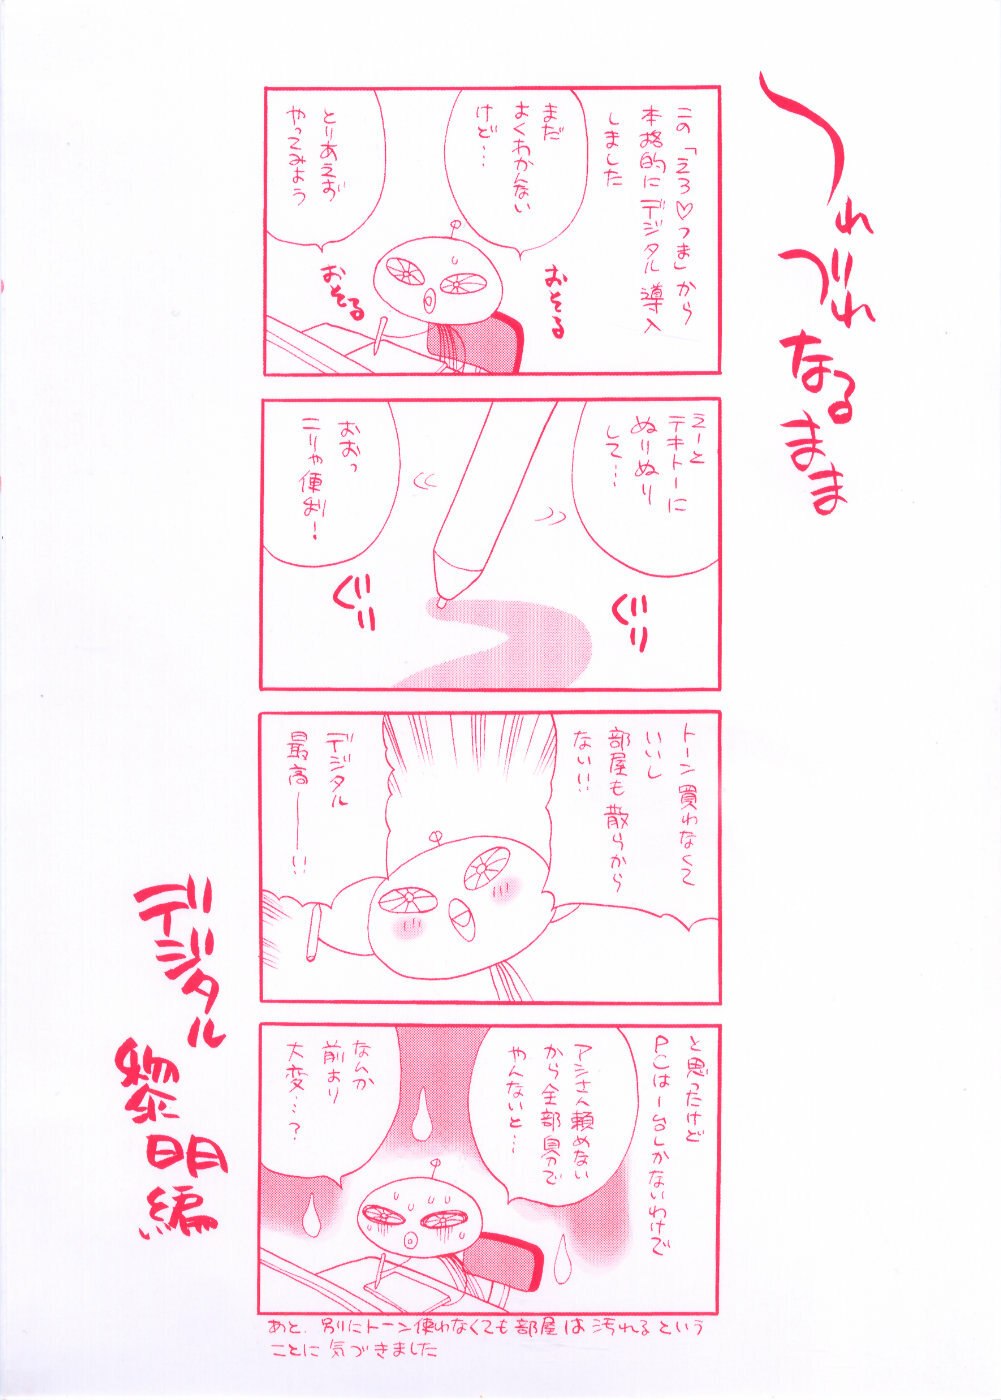 つれづれなるまま
この「えろ♡つま」から
本格的にデジタル導入
しました
まだ
よくわかんない
けど…
とりあえず
やってみよう
おそる
おそる
えーと
テキトーに
ぬりぬり
して…
おおっ
こりゃ便利!
ぐりり
ぐりり
トーン買わなくて
いいし
部屋も散らから
ない!!
デジタル
最高――!!
と思ったけど
PCは一台しかないわけで
アシさん頼めない
から全部自分で
やんないと…
なんか
前より
大変…?
デジタル
黎明編
あと、別にトーン使わなくても部屋は汚れるという
ことに気づきました